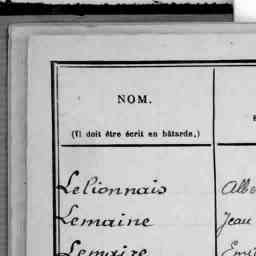 NOM.
(Il doit être écrit en bâtarde.)
Lelionnais
Lemaine Jean
Lemaire